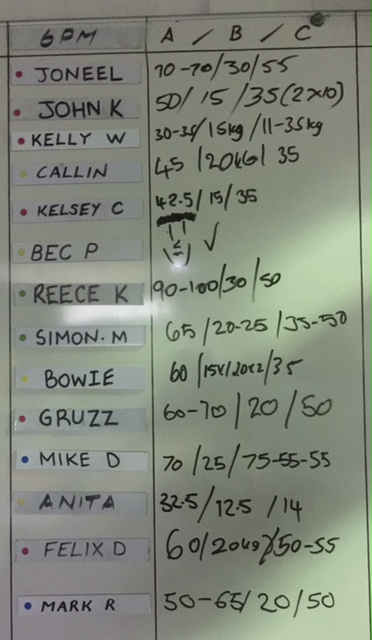 6PM A / B / C
JONEEL 70-70/30/55
JOHN K 50/ 15 /35(2x10)
KELLY W 30-35/15kg/11-35kg
CALLIN 45 /20KG/ 35
KELSEY C 42.5/15/35
BEC P ✓
REECE K 90-100/30/50
SIMON.M 65/20-25/35-50
BOWIE 60/15x1/20x2/35
GRUZZ 60-70/20/50
MIKE D 70/25/75-55-55
ANITA 32.5/12.5/14
FELIX D 60/20kg/50-55
MARK R 50-65/20/50